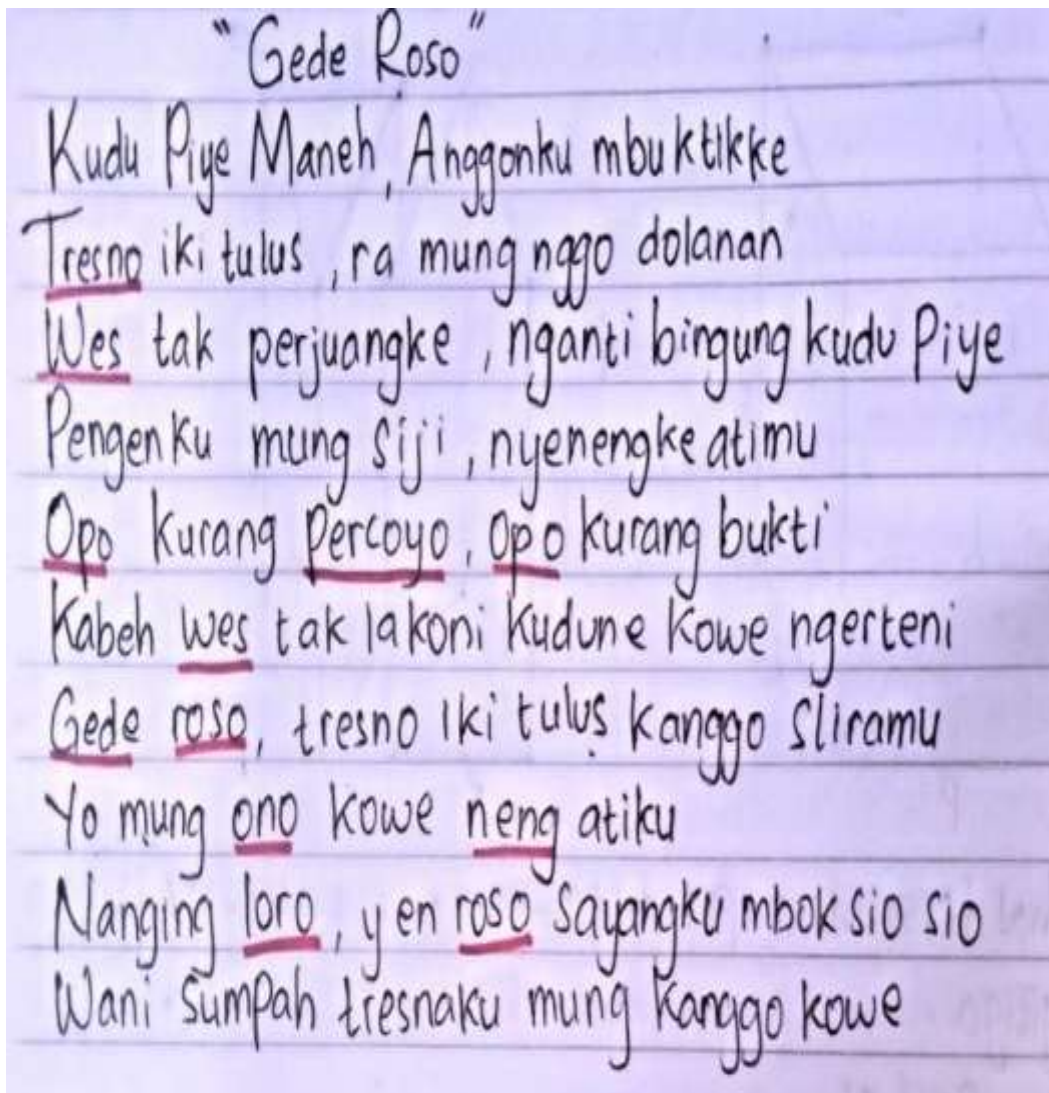 "Gede Roso"
Kudu Piye Maneh, Anggonku mbuktikke
Tresno iki tulus, ra mung nggo dolanan
Wes tak perjuangke, nganti bingung kudu Piye
Pengenku mung siji, nyenengke atimu
Opo kurang Percoyo, Opo kurang bukti
Kabeh wes tak lakoni kudune kowe ngerteni
Gede roso, tresno iki tulus kanggo sliramu
Yo mung ono kowe neng atiku
Nanging loro, yen roso sayangku mbok sio sio
Wani sumpah tresnaku mung kanggo kowe